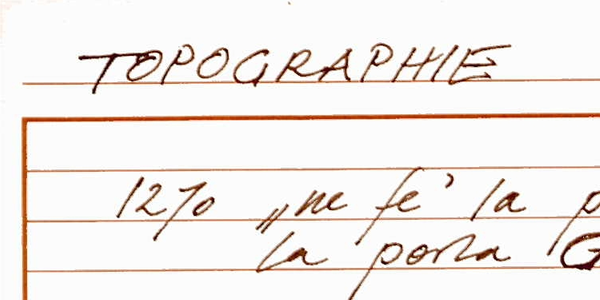 TOPOGRAPHIE
1270 „ne fe' la p
la porta G